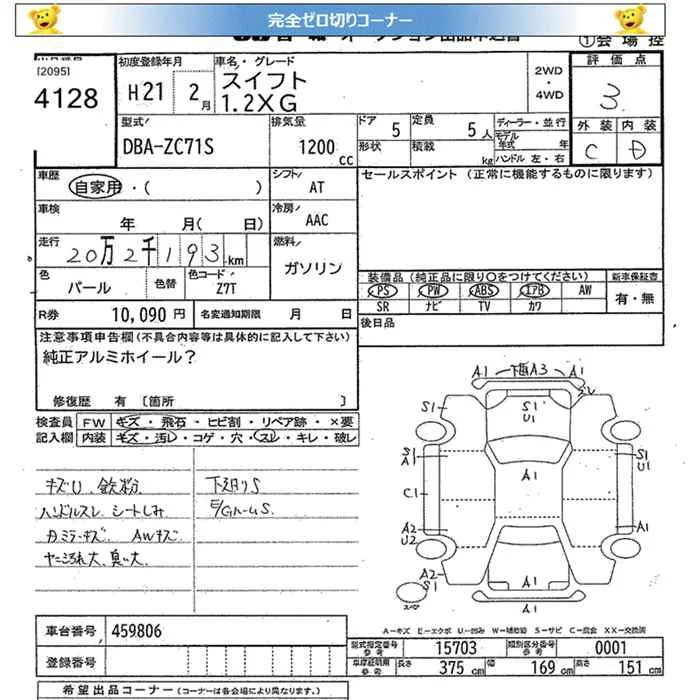 完全ゼロ切りコーナー
①会場控
[2095]
4128
初度登録年月
H21 2月
車名・グレード
スイフト
1.2XG
2WD
・
4WD
評価点
3
外装 内装
C D
型式
DBA-ZC71S
排気量
1200 cc
ドア 5
形状
定員 5人
積載 kg
ディーラー・並行
モデル年式 年
ハンドル 左・右
車歴
自家用・( )
シフト
AT
セールスポイント (正常に機能するものに限ります)
車検
年 月( 日)
冷房
AAC
走行
20万2千193km
燃料
ガソリン
色
パール
色替
色コード
Z7T
装備品(純正品に限り○をつけてください)
新車保証書
PS PW ABS エアB AW
SR ナビ TV カワ
有・無
R券 10,090円
名変通知期限 月 日
後日品
注意事項申告欄(不具合内容等は具体的に記入して下さい)
純正アルミホイール?
修復歴 有 〔箇所 〕
検査員記入欄
FW キズ・飛石・ヒビ割・リペア跡・×要
内装 キズ・汚レ・コゲ・穴・スレ・キレ・破レ
キズU、鉄粉
ハンドルスレ シートしみ
カミラーキズ AWキズ
ヤニ汚れ大、臭い大
下廻りS
E/GルームS
A1 下廻A3 A1
スレ
S1
S1
U1
S1
A1
A1
S1
U1
C1
A2
U2
A1
A2
S1
A1
A1
スペア
A-キズ E-エクボ U-凹み W-補修跡 S-サビ C-腐食 XX-交換済
車台番号 459806
登録番号
型式指定番号 参考 15703
類別区分番号 参考 0001
車庫証明用 参考 長さ 375 cm 幅 169 cm 高さ 151 cm
希望出品コーナー (コーナーは各会場により異なります。)